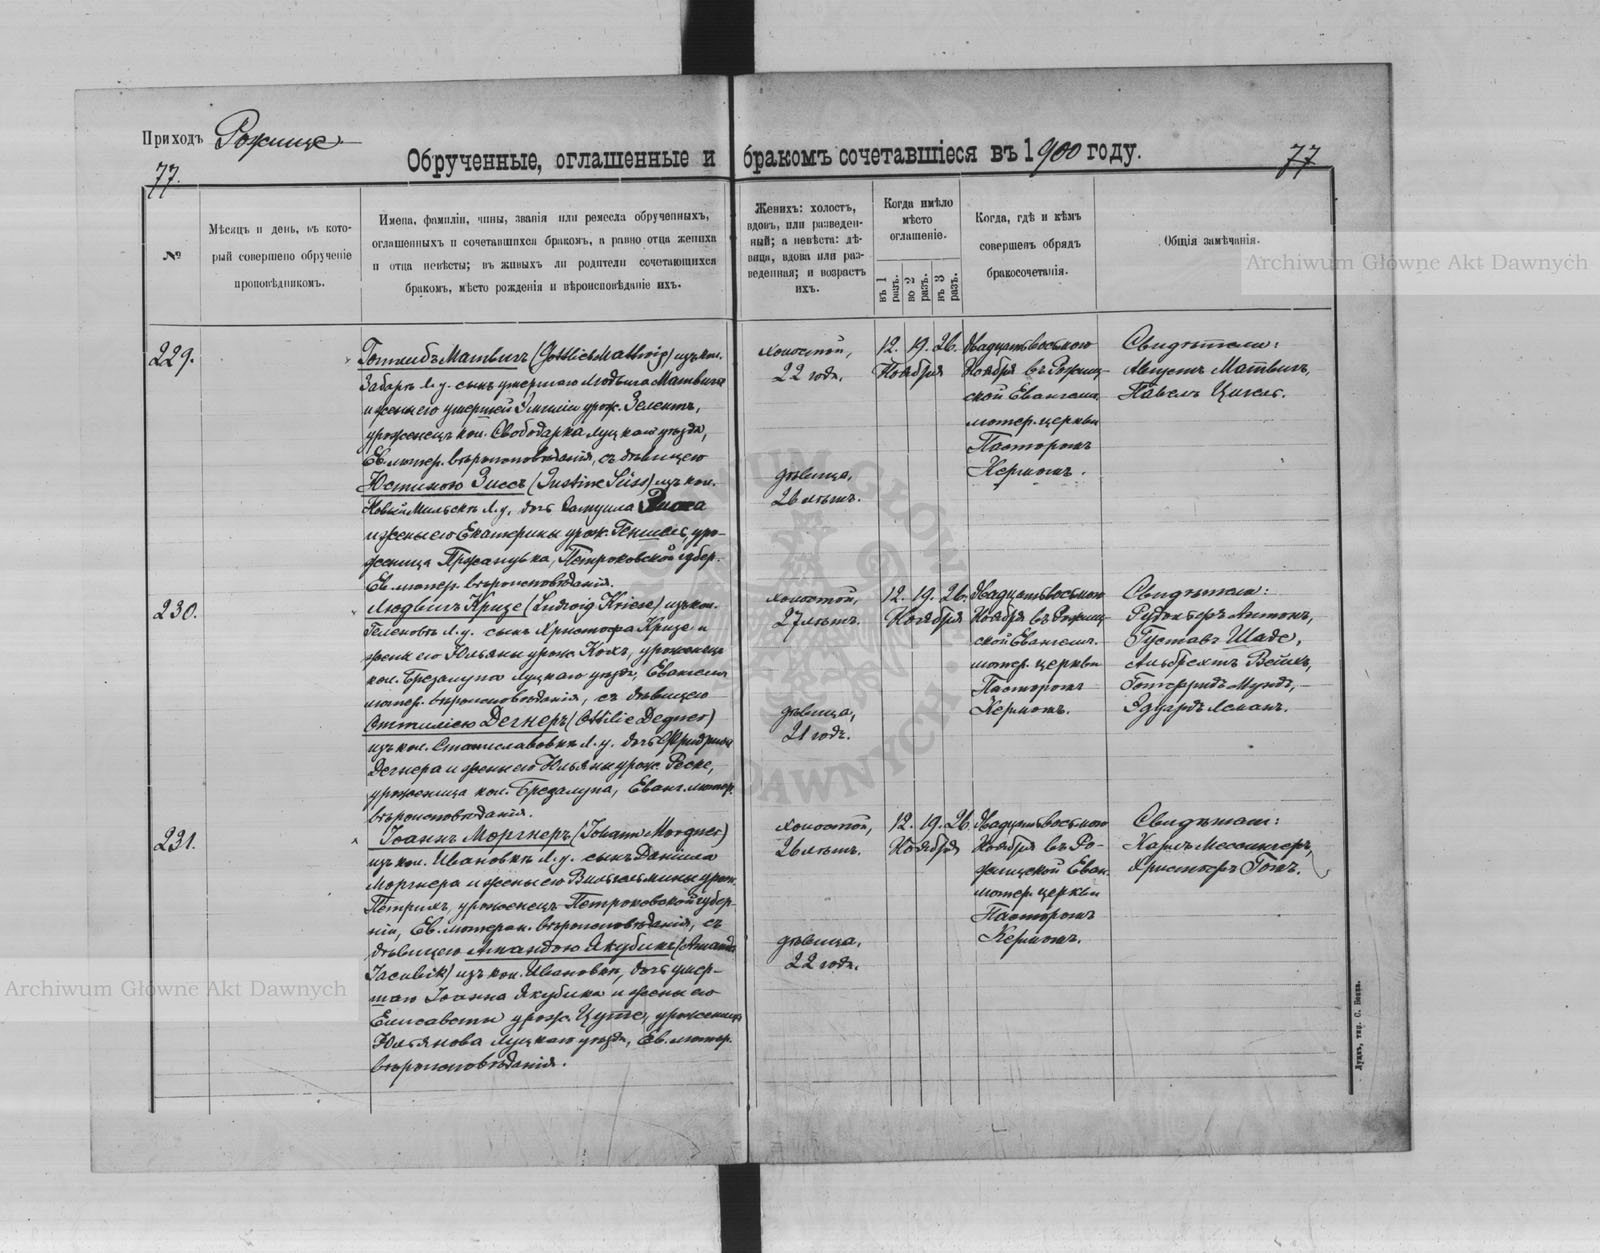 Приходъ Рожище
77.
Обрученные, оглашенные и бракомъ сочетавшіеся въ 1900 году.
77
№
Мѣсяцъ и день, въ кото-
рый совершено обрученіе
проповѣдникомъ.
Имена, фамиліи, чины, званія или ремесла обрученныхъ,
оглашенныхъ и сочетавшихся бракомъ, а равно отца жениха
и отца невѣсты; въ живыхъ ли родители сочетающихся
бракомъ, мѣсто рожденія и вѣроисповѣданіе ихъ.
Женихъ: холостъ,
вдовъ, или разведен-
ный; а невѣста: дѣ-
вица, вдова или раз-
веденная; и возрастъ
ихъ.
Когда имѣло
мѣсто
оглашеніе.
въ 1 разъ.
во 2 разъ.
въ 3 разъ.
Когда, гдѣ и кѣмъ
совершенъ обрядъ
бракосочетанія.
Общія замѣчанія.
229.
Готлибъ Матвигъ (Gottlieb Mattwig) изъ кол.
Забара Л. у. сынъ умершаго Людвига Матвига
и жены его умершей Эмиліи урож. Зелентъ,
уроженецъ кол. Свободарка Луцкаго уѣзда,
Ев. лютер. вѣроисповѣданія, съ дѣвицею
Юстиною Зиссъ (Justine Süss) изъ кол.
Новый Мильскъ Л. у. дочь Самуила Зисса
и жены его Екатерины урож. Геншель, уро-
женица Пржатувка, Петроковской губер.
Ев. лютер. вѣроисповѣданія.
холостой,
22 года.
дѣвица,
26 лѣтъ.
12. 19. 26.
Ноября
Двадцать восьмого
Ноября въ Рожищ-
ской Евангел.
лютер. церкви
Пасторомъ
Кермомъ.
Свидѣтели:
Августъ Матвигъ,
Павелъ Цигель.
230.
Людвигъ Кризе (Ludwig Kriese) изъ кол.
Геленовка Л. у. сынъ Христофа Кризе и
жены его Юльяны урож. Кохъ, уроженецъ
кол. Брезалупы Луцкаго уѣзда, Евангел.
лютер. вѣроисповѣданія, съ дѣвицею
Оттиліею Дегнеръ (Ottilie Degner)
изъ кол. Станиславовка Л. у. дочь Фридриха
Дегнера и жены его Юльяны урож. Реске,
уроженица кол. Брезалупа, Еванг. лютер.
вѣроисповѣданія.
холостой,
27 лѣтъ.
дѣвица,
21 годъ.
12. 19. 26.
Ноября
Двадцать восьмого
Ноября въ Рожищ-
ской Евангелич.
лютер. церкви
Пасторомъ
Кермомъ.
Свидѣтели:
Рудольфъ Антонъ,
Густавъ Шаде,
Альбрехтъ Вейкъ,
Готфридъ Мундъ,
Эдуардъ Ясманъ.
231.
Іоаннъ Моргнеръ (Johann Morgner)
изъ кол. Ивановка Л. у. сынъ Даніила
Моргнера и жены его Вильгельмины урож.
Петрихъ, уроженецъ Петроковской губер-
ніи, Ев. лютеран. вѣроисповѣданія, съ
дѣвицею Амандою Якубикъ (Amanda
Jacubik) изъ кол. Ивановка, дочь умер-
шаго Іоанна Якубика и жены его
Елисаветы урож. Цутс, уроженица
Юльянова Луцкаго уѣзда, Ев. лютер.
вѣроисповѣданія.
холостой,
26 лѣтъ.
дѣвица,
22 года.
12. 19. 26.
Ноября
Двадцать восьмого
Ноября въ Ро-
жищской Еван.
лютер. церкви
Пасторомъ
Кермомъ.
Свидѣтели:
Карлъ Мессингеръ,
Христофъ Готъ.
Луцкъ, тип. С. Бокса.
Archiwum Główne Akt Dawnych
Archiwum Główne Akt Dawnych